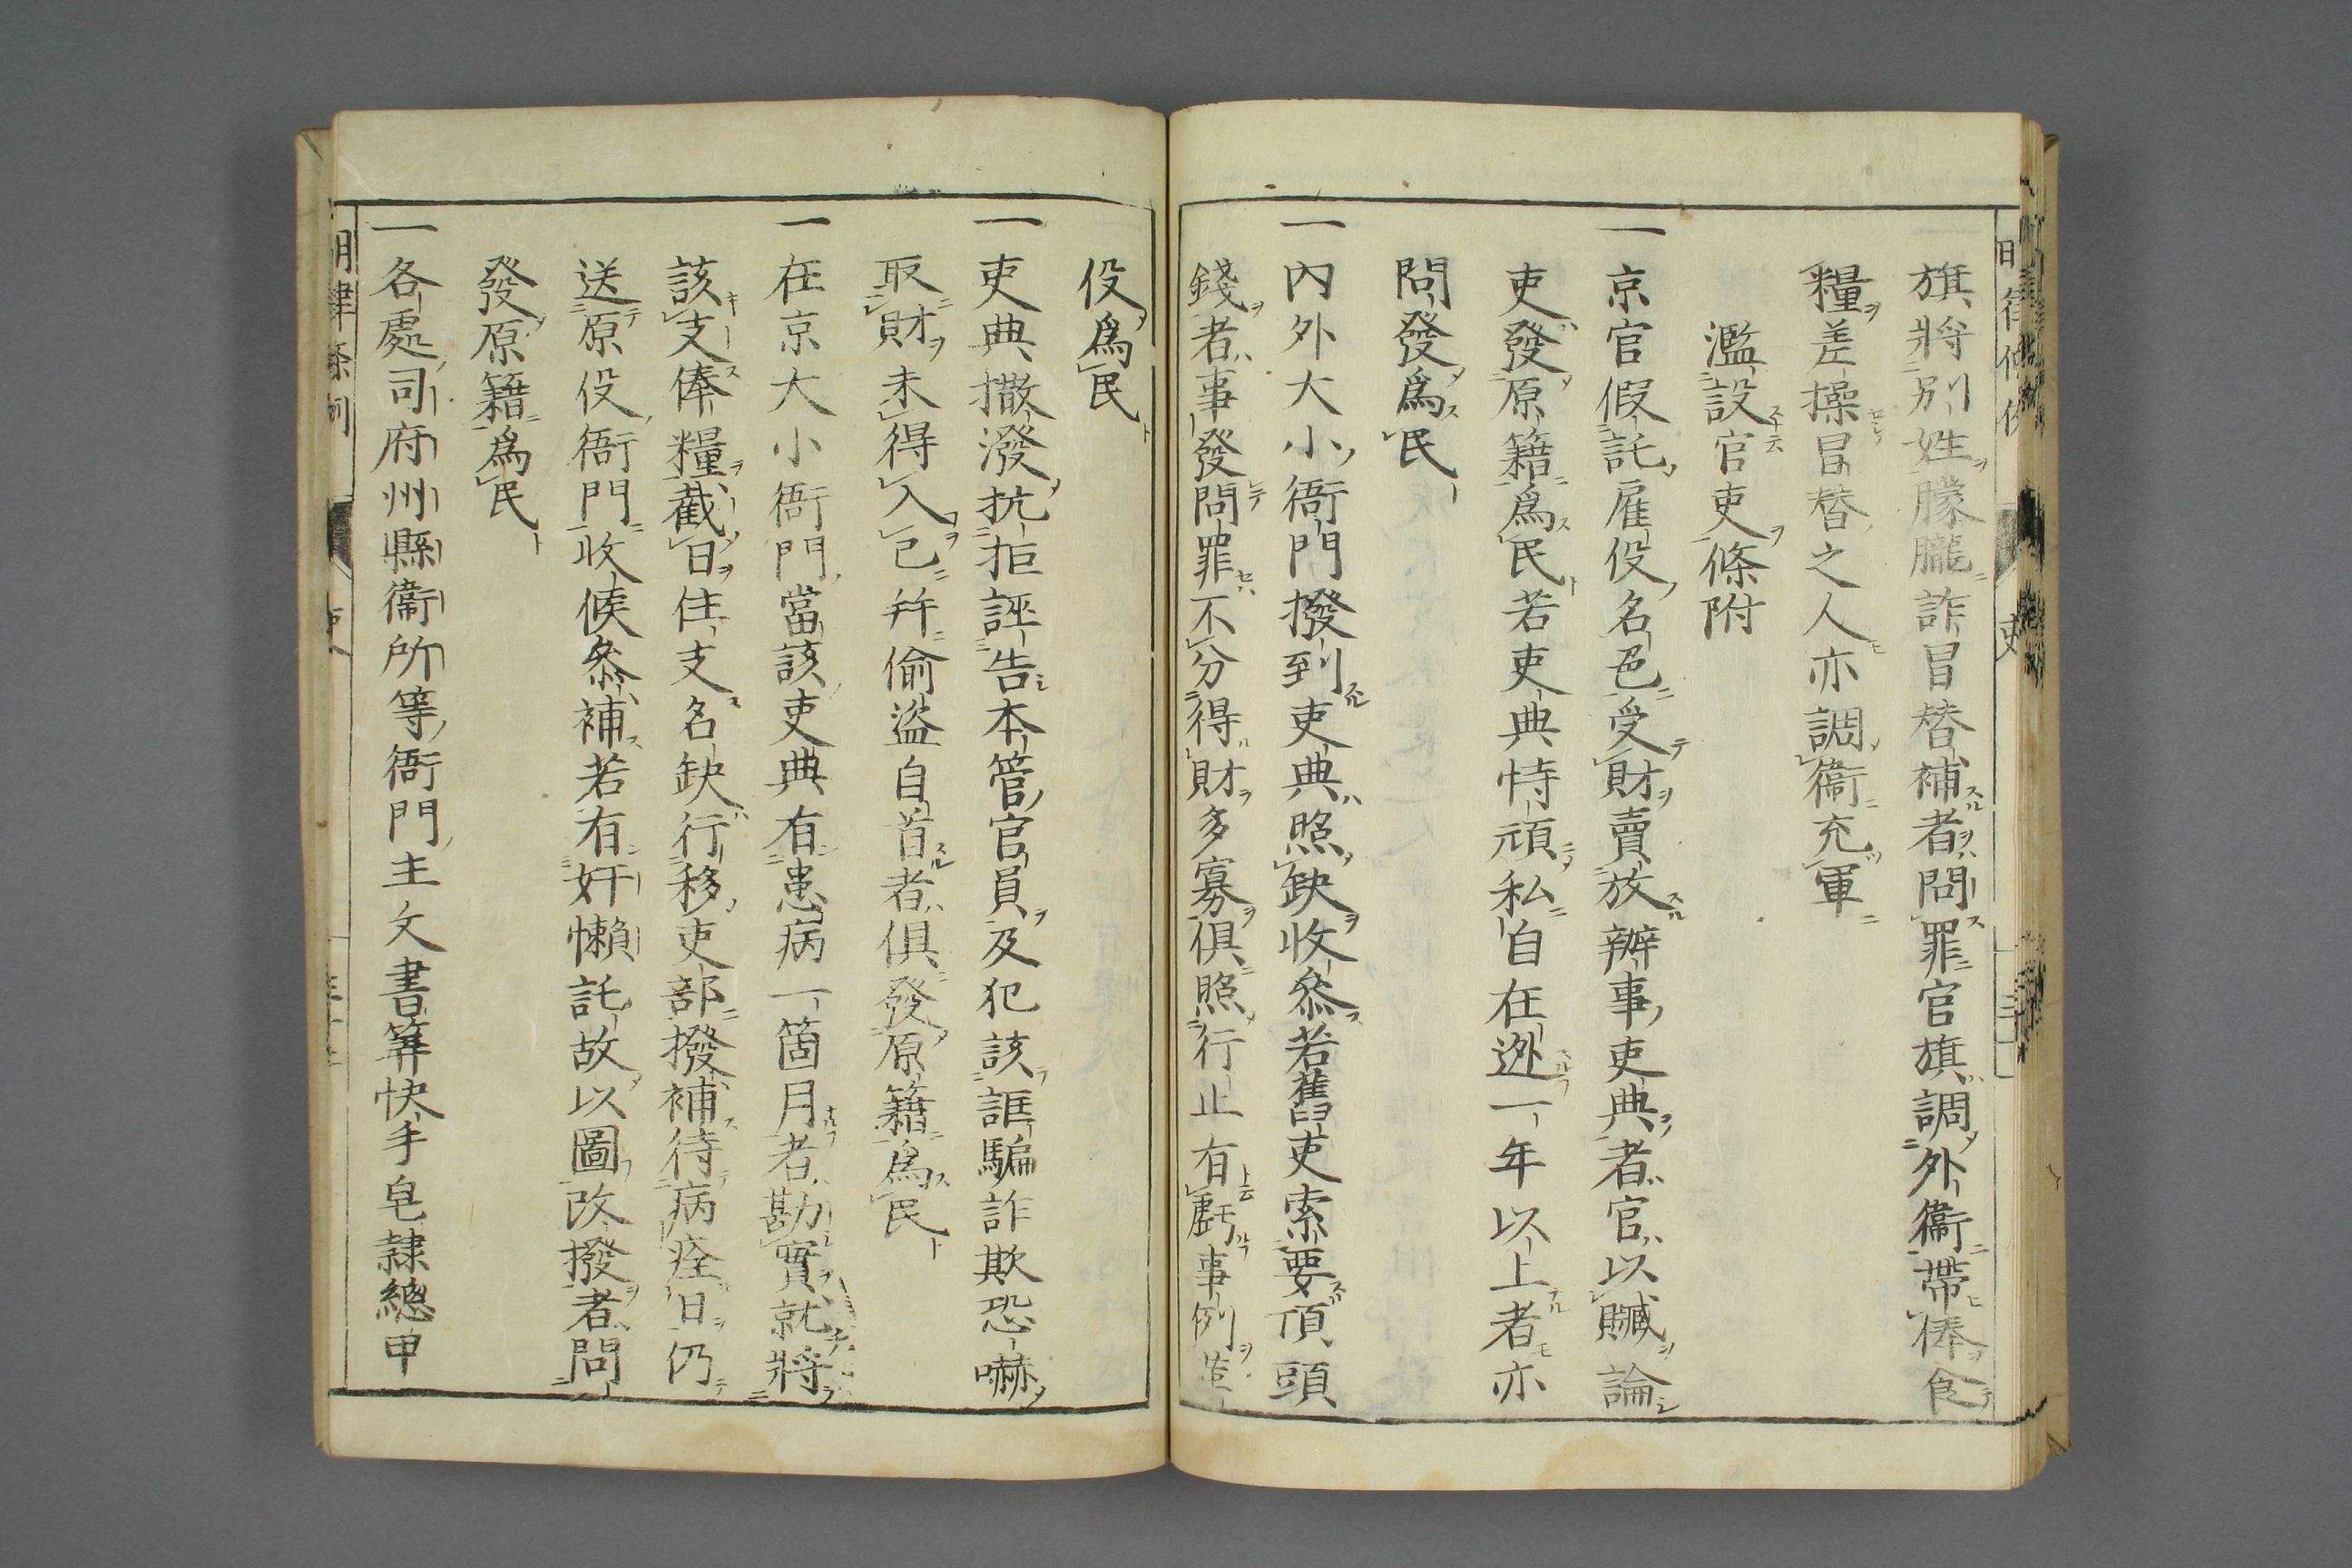 旗將別姓朦朧詐冒替補者問罪官旗調外衞帶俸食
糧差操冒替之人亦調衞充軍
濫設官吏條附
一京官假託雇役名色受財賣放辦事吏典者官以贓論
吏發原籍爲民若吏典恃頑私自在逃一年以上者亦
問發爲民
一內外大小衙門撥到吏典照缺收參若舊吏索要頂頭
錢者事發問罪不分得財多寡俱照行止有虧事例
役爲民
一吏典撒潑抗拒誣告本管官員及犯該誆騙詐欺恐嚇
取財未得入己幷偷盜自首者俱發原籍爲民
一在京大小衙門當該吏典有患病一箇月者勘實就將
該支俸糧截日住支名缺行移吏部撥補待病痊日仍
送原役衙門收候參補若有奸懶託故以圖改撥者問
發原籍爲民
一各處司府州縣衞所等衙門主文書算快手皂隸總甲